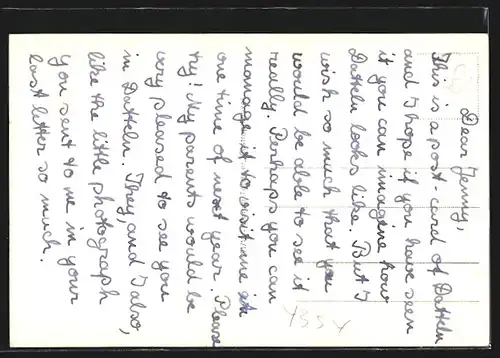 Dear Jenny,
This is a post-card of Datteln
and I hope if you have seen
it you can imagine how
Datteln looks like. But I
wish so much that you
would be able to see it
really. Perhaps you can
manage it to visit me at
one time of next year. Please
try! My parents would be
very pleased to see you
in Datteln. They and I also,
like the little photograph
you sent to me in your
last letter so much.